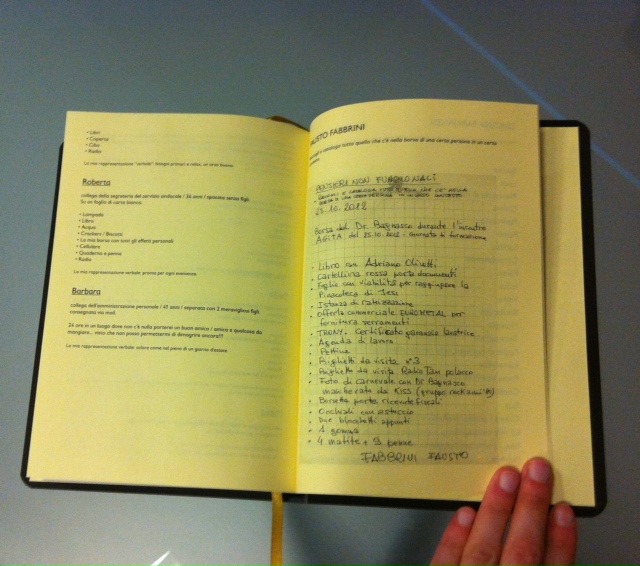 • Libri
• Coperta
• Cibo
• Radio
La mia rappresentazione "verbale" bisogni primari e colori, mi sento bianco.
Roberta
collega della segreteria del servizio sindacale / 36 anni / sposata senza figli.
Su un foglio di carta bianco.
• Lampada
• Libro
• Acqua
• Crackers / Biscotti
• La mia borsa con tutti gli effetti personali
• Cellulare
• Quaderno e penna
• Radio
La mia rappresentazione verbale: pronta per ogni evenienza.
Barbara
collega dell'amministrazione personale / 41 anni / separata con 2 meravigliosi figli.
consegnata via mail.
24 ore in un luogo dove non c'è nulla porterei un buon amico / amica e qualcosa da
mangiare... visto che non posso permettermi di dimagrire ancora!!!
La mia rappresentazione verbale: colore come nel pieno di un giorno d'estate.
FAUSTO FABBRINI
e cataloga tutto quello che c'è nella borsa di una certa persona in un certo
PENSIERI NON FUNZIONALI
25.10.2012
Borsa del Dr. Bagnasco durante l'incontro
del 25.10.2012 - giornata di formazione
• Libro su Adriano Olivetti
• Cartellina rossa porta documenti
• Foglio con viabilità per raggiungere la
Pinacoteca di Jesi
• Istanza di rateizzazione
• Offerta commerciale EUROMETAL per
fornitura serramenti
• TRONY. Certificato garanzia lavatrice
• Agenda di lavoro
• Pettine
• Biglietti da visita n°3
• Biglietto da visita Radio Taxi polacco
• Foto di carnevale con Dr Bagnasco
mascherato da KISS (gruppo rock anni '70)
• Bustta porta ricevute fiscali
• Occhiali con astuccio
• Due blocchetti appunti
• 1 gomma
• 4 matite + 9 penne
FABBRINI FAUSTO